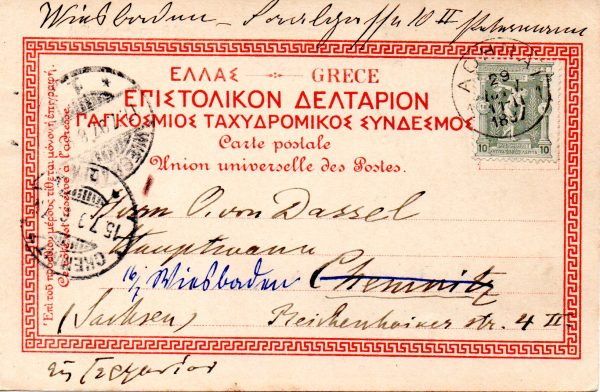 Wiesbaden
10 II
ΕΛΛΑΣ GRECE
ΕΠΙΣΤΟΛΙΚΟΝ ΔΕΛΤΑΡΙΟΝ
ΠΑΓΚΟΣΜΙΟΣ ΤΑΧΥΔΡΟΜΙΚΟΣ ΣΥΝΔΕΣΜΟΣ
Carte postale
Union universelle des Postes.
29
1897
10 10
Herrn O. von Dassel
Hauptmann
16/7 Wiesbaden Chemnitz
(Sachsen) Reichenhainer str. 4 II.
εἰς Γερμανίαν
15.7.9
CHEMNITZ
Ἐπὶ τοῦ παρόντος μέρους τίθεται μόνον ἡ ἐπιγραφή.
Ce côté est réservé à l'adresse.